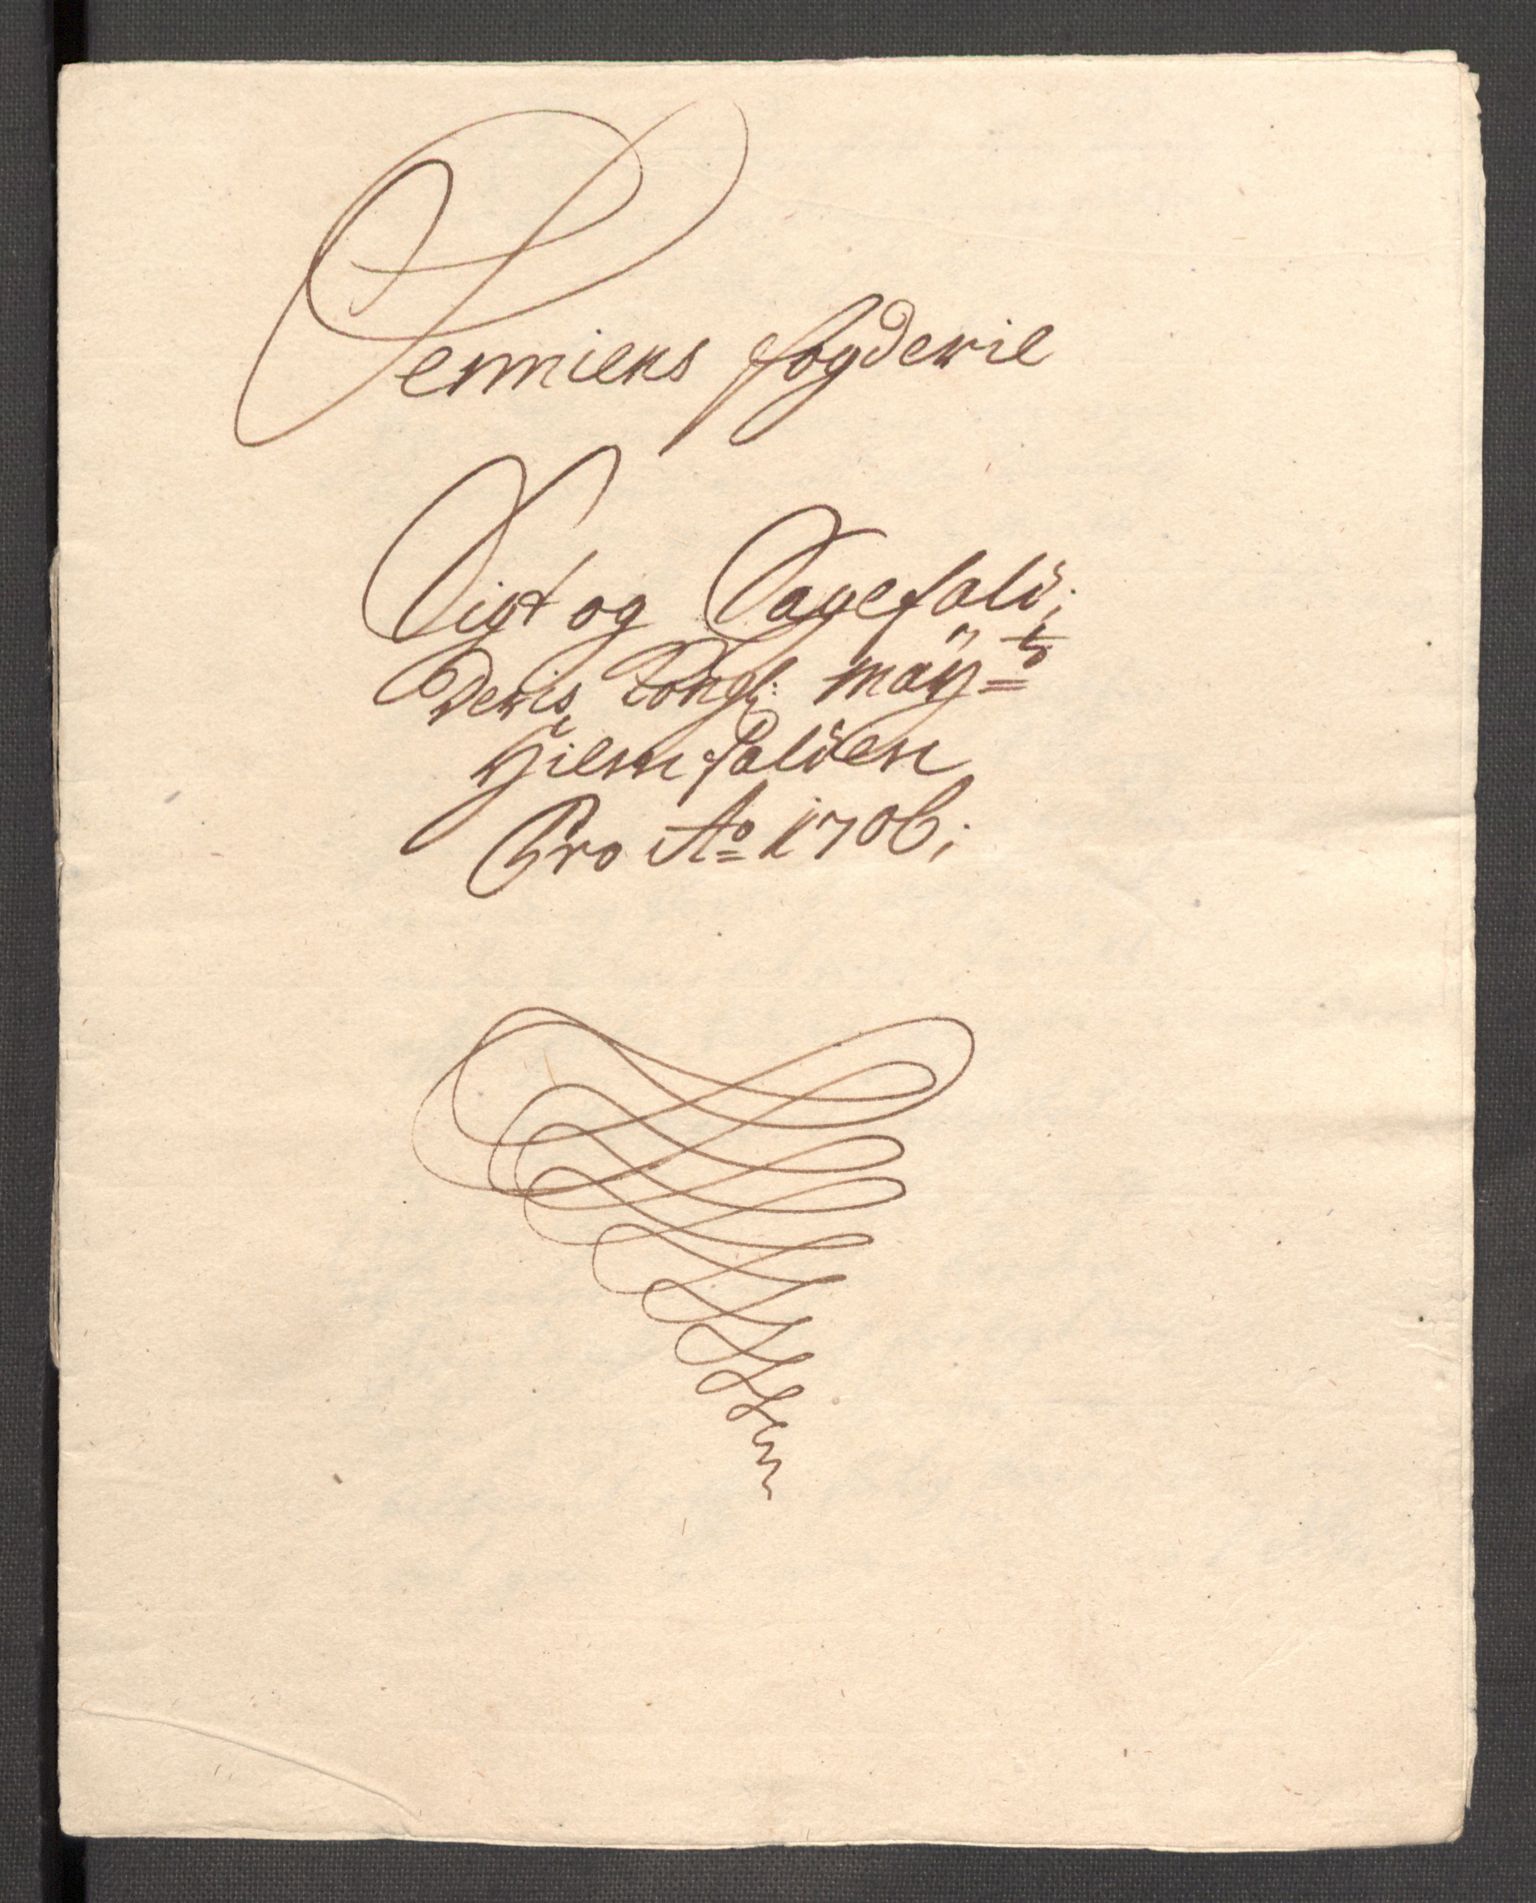 Senniens fogderie
Sigt og Sagefald;
Deris Kongl: May:ts
Hiemfalden
Pro Ao 1706;